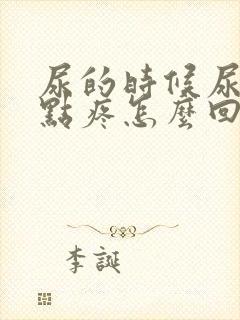 尿的時候尿
點疼怎麼回
李誕